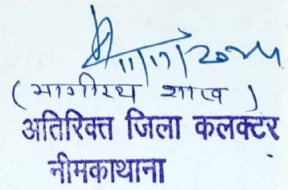 11/11/2024
(भागीरथ शाख)
अतिरिक्त जिला कलक्टर
नीमकाथाना